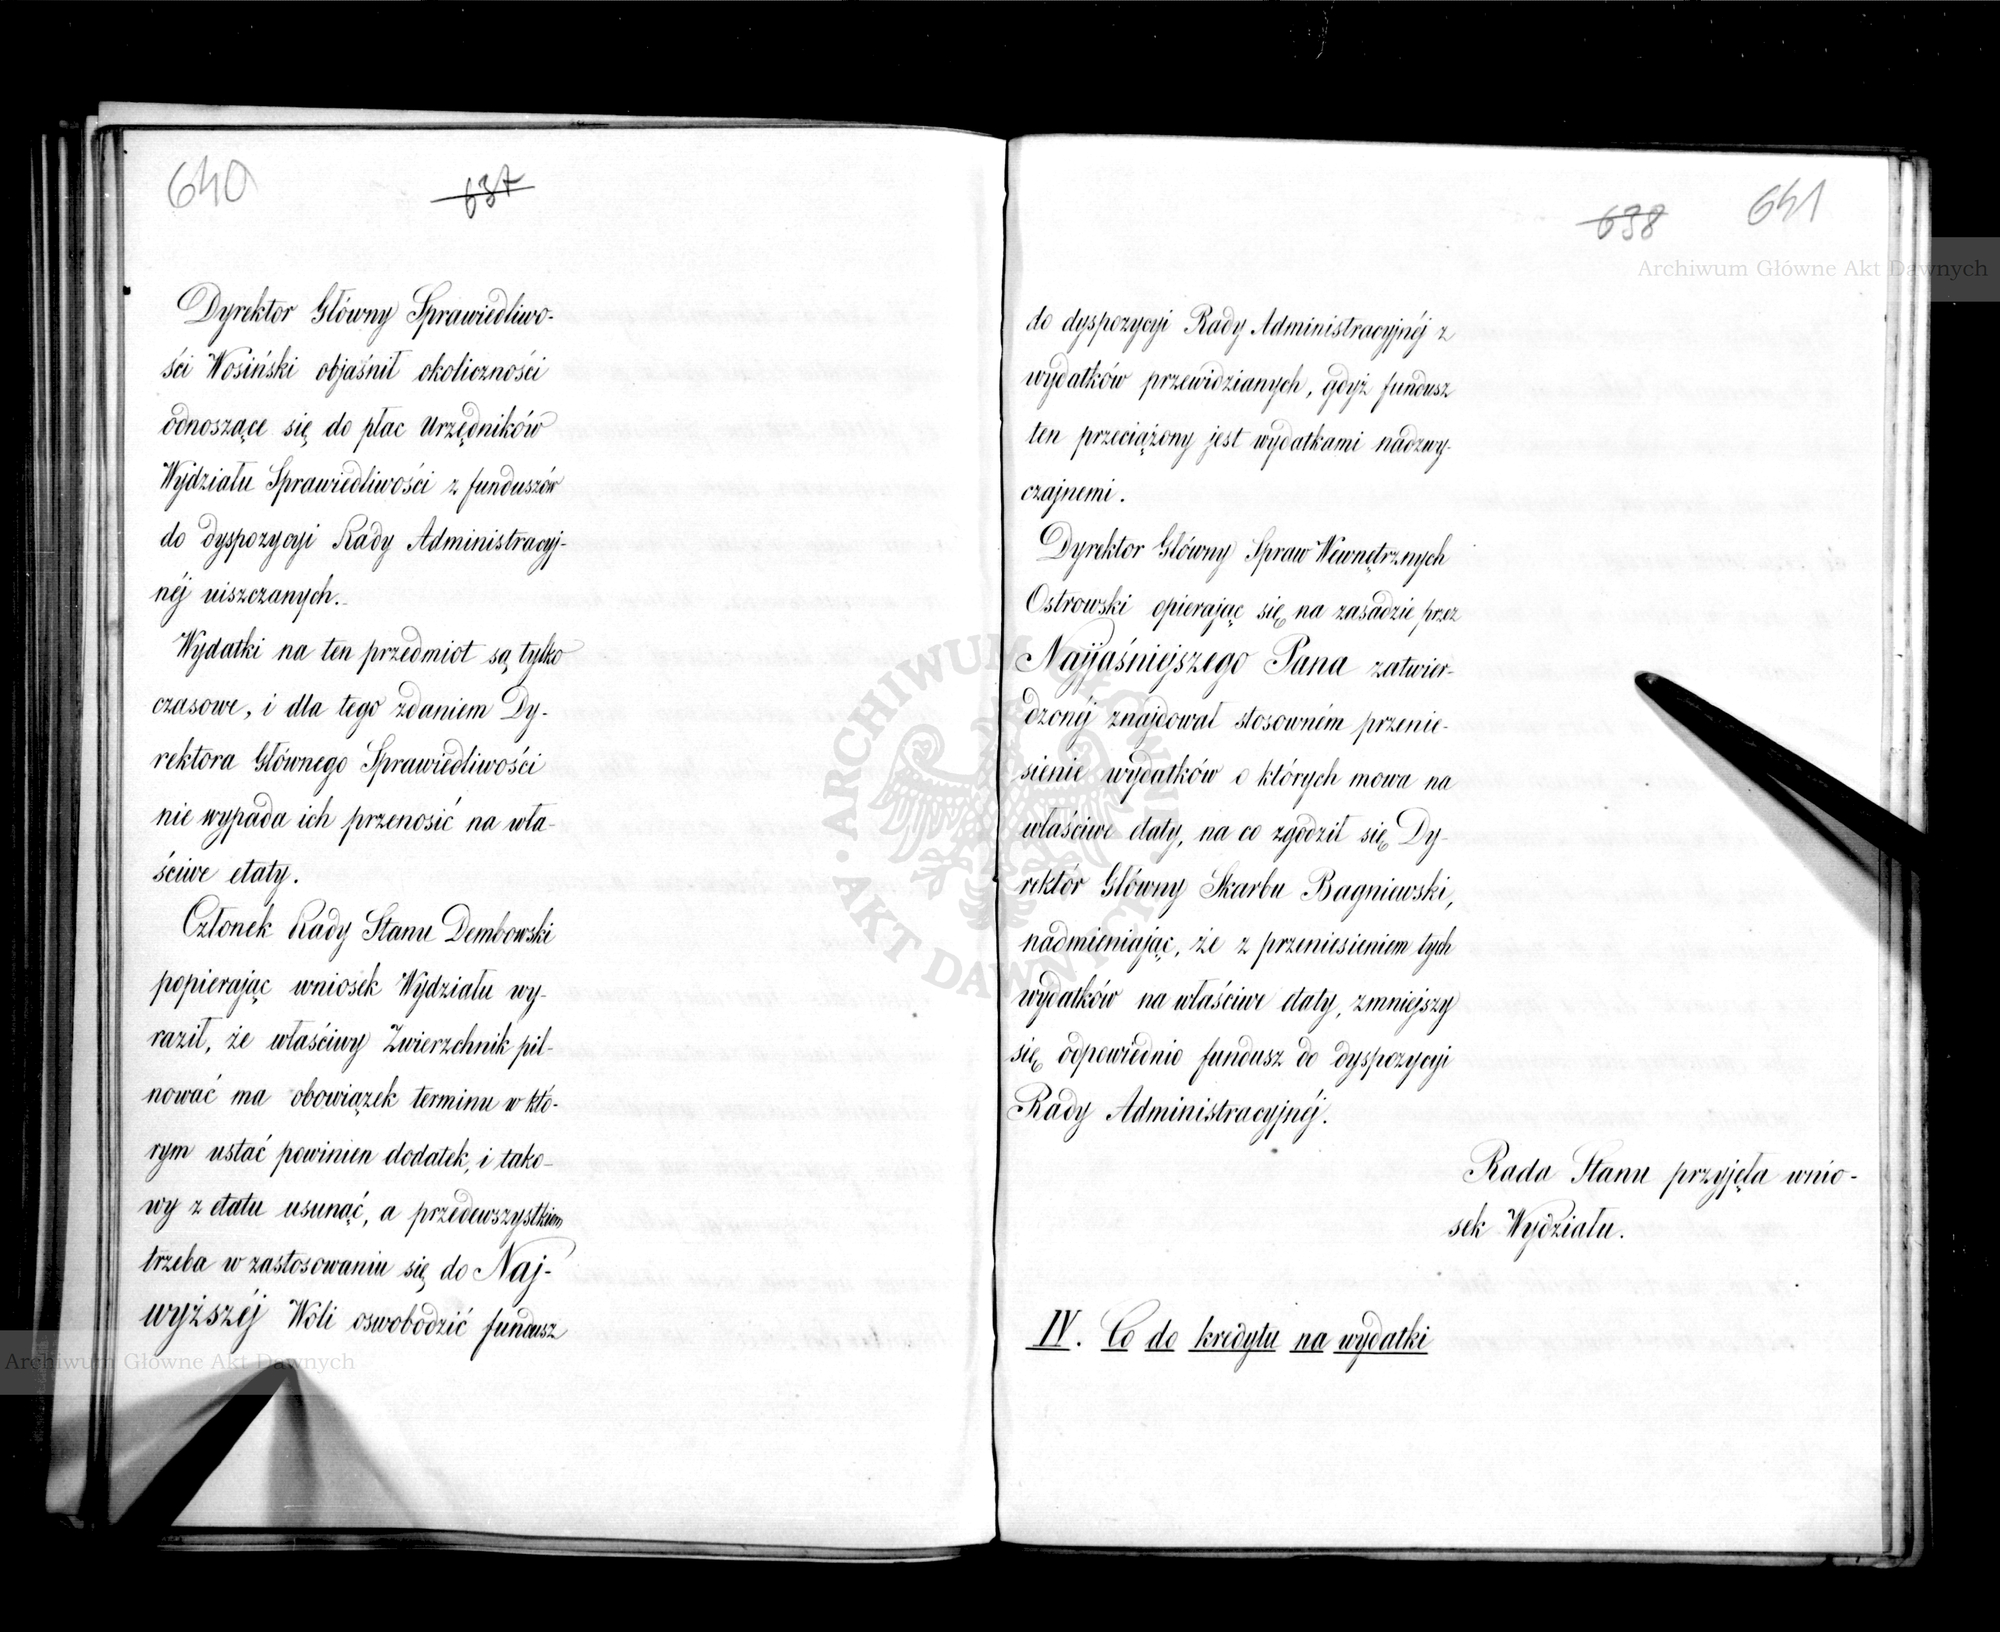 640
637
Dyrektor Główny Sprawiedliwo-
ści Wosiński objaśnił okoliczności
odnoszące się do płac Urzędników
Wydziału Sprawiedliwości z funduszów
do dyspozycyi Rady Administracyj-
néj uiszczanych.
Wydatki na ten przedmiot są tylko
czasowe, i dla tego zdaniem Dy-
rektora Głównego Sprawiedliwości
nie wypada ich przenosić na wła-
ściwe etaty.
Członek Rady Stanu Dembowski
popierając wniosek Wydziału wy-
raził, że właściwy Zwierzchnik pil-
nować ma obowiązek terminu w któ-
rym ustać powinien dodatek, i tako-
wy z etatu usunąć, a przedewszystkiem
trzeba w zastosowaniu się do Naj-
wyższéj Woli oswobodzić fundusz
638
641
do dyspozycyi Rady Administracyjnéj z
wydatków przewidzianych, gdyż fundusz
ten przeciążony jest wydatkami nadzwy-
czajnemi.
Dyrektor Główny Spraw Wewnętrznych
Ostrowski opierając się na zasadzie przez
Najjaśniejszego Pana zatwier-
dzonéj znajdował stosowném przenie-
sienie wydatków o których mowa na
właściwe etaty, na co zgodził się Dy-
rektór Główny Skarbu Bagniewski,
nadmieniając, że z przeniesieniem tych
wydatków na właściwe etaty, zmniejszy
się odpowiednio fundusz do dyspozycyi
Rady Administracyjnéj.
Rada Stanu przyjęła wnio-
sek Wydziału.
IV. Co do kredytu na wydatki
Archiwum Główne Akt Dawnych
Archiwum Główne Akt Dawnych
ARCHIWUM GŁÓWNE AKT DAWNYCH